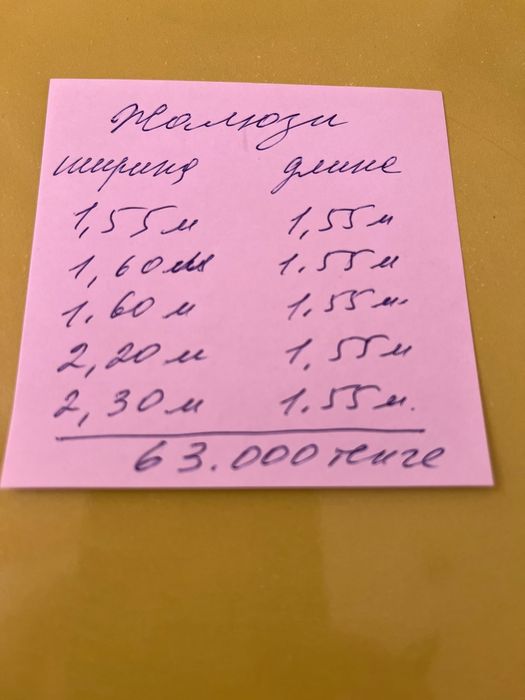 Жалюзи
ширина длина
1,55 м 1,55 м
1,60 м 1.55 м
1.60 м 1.55 м.
2,20 м 1,55 м
2,30 м 1.55 м.
63.000 тенге